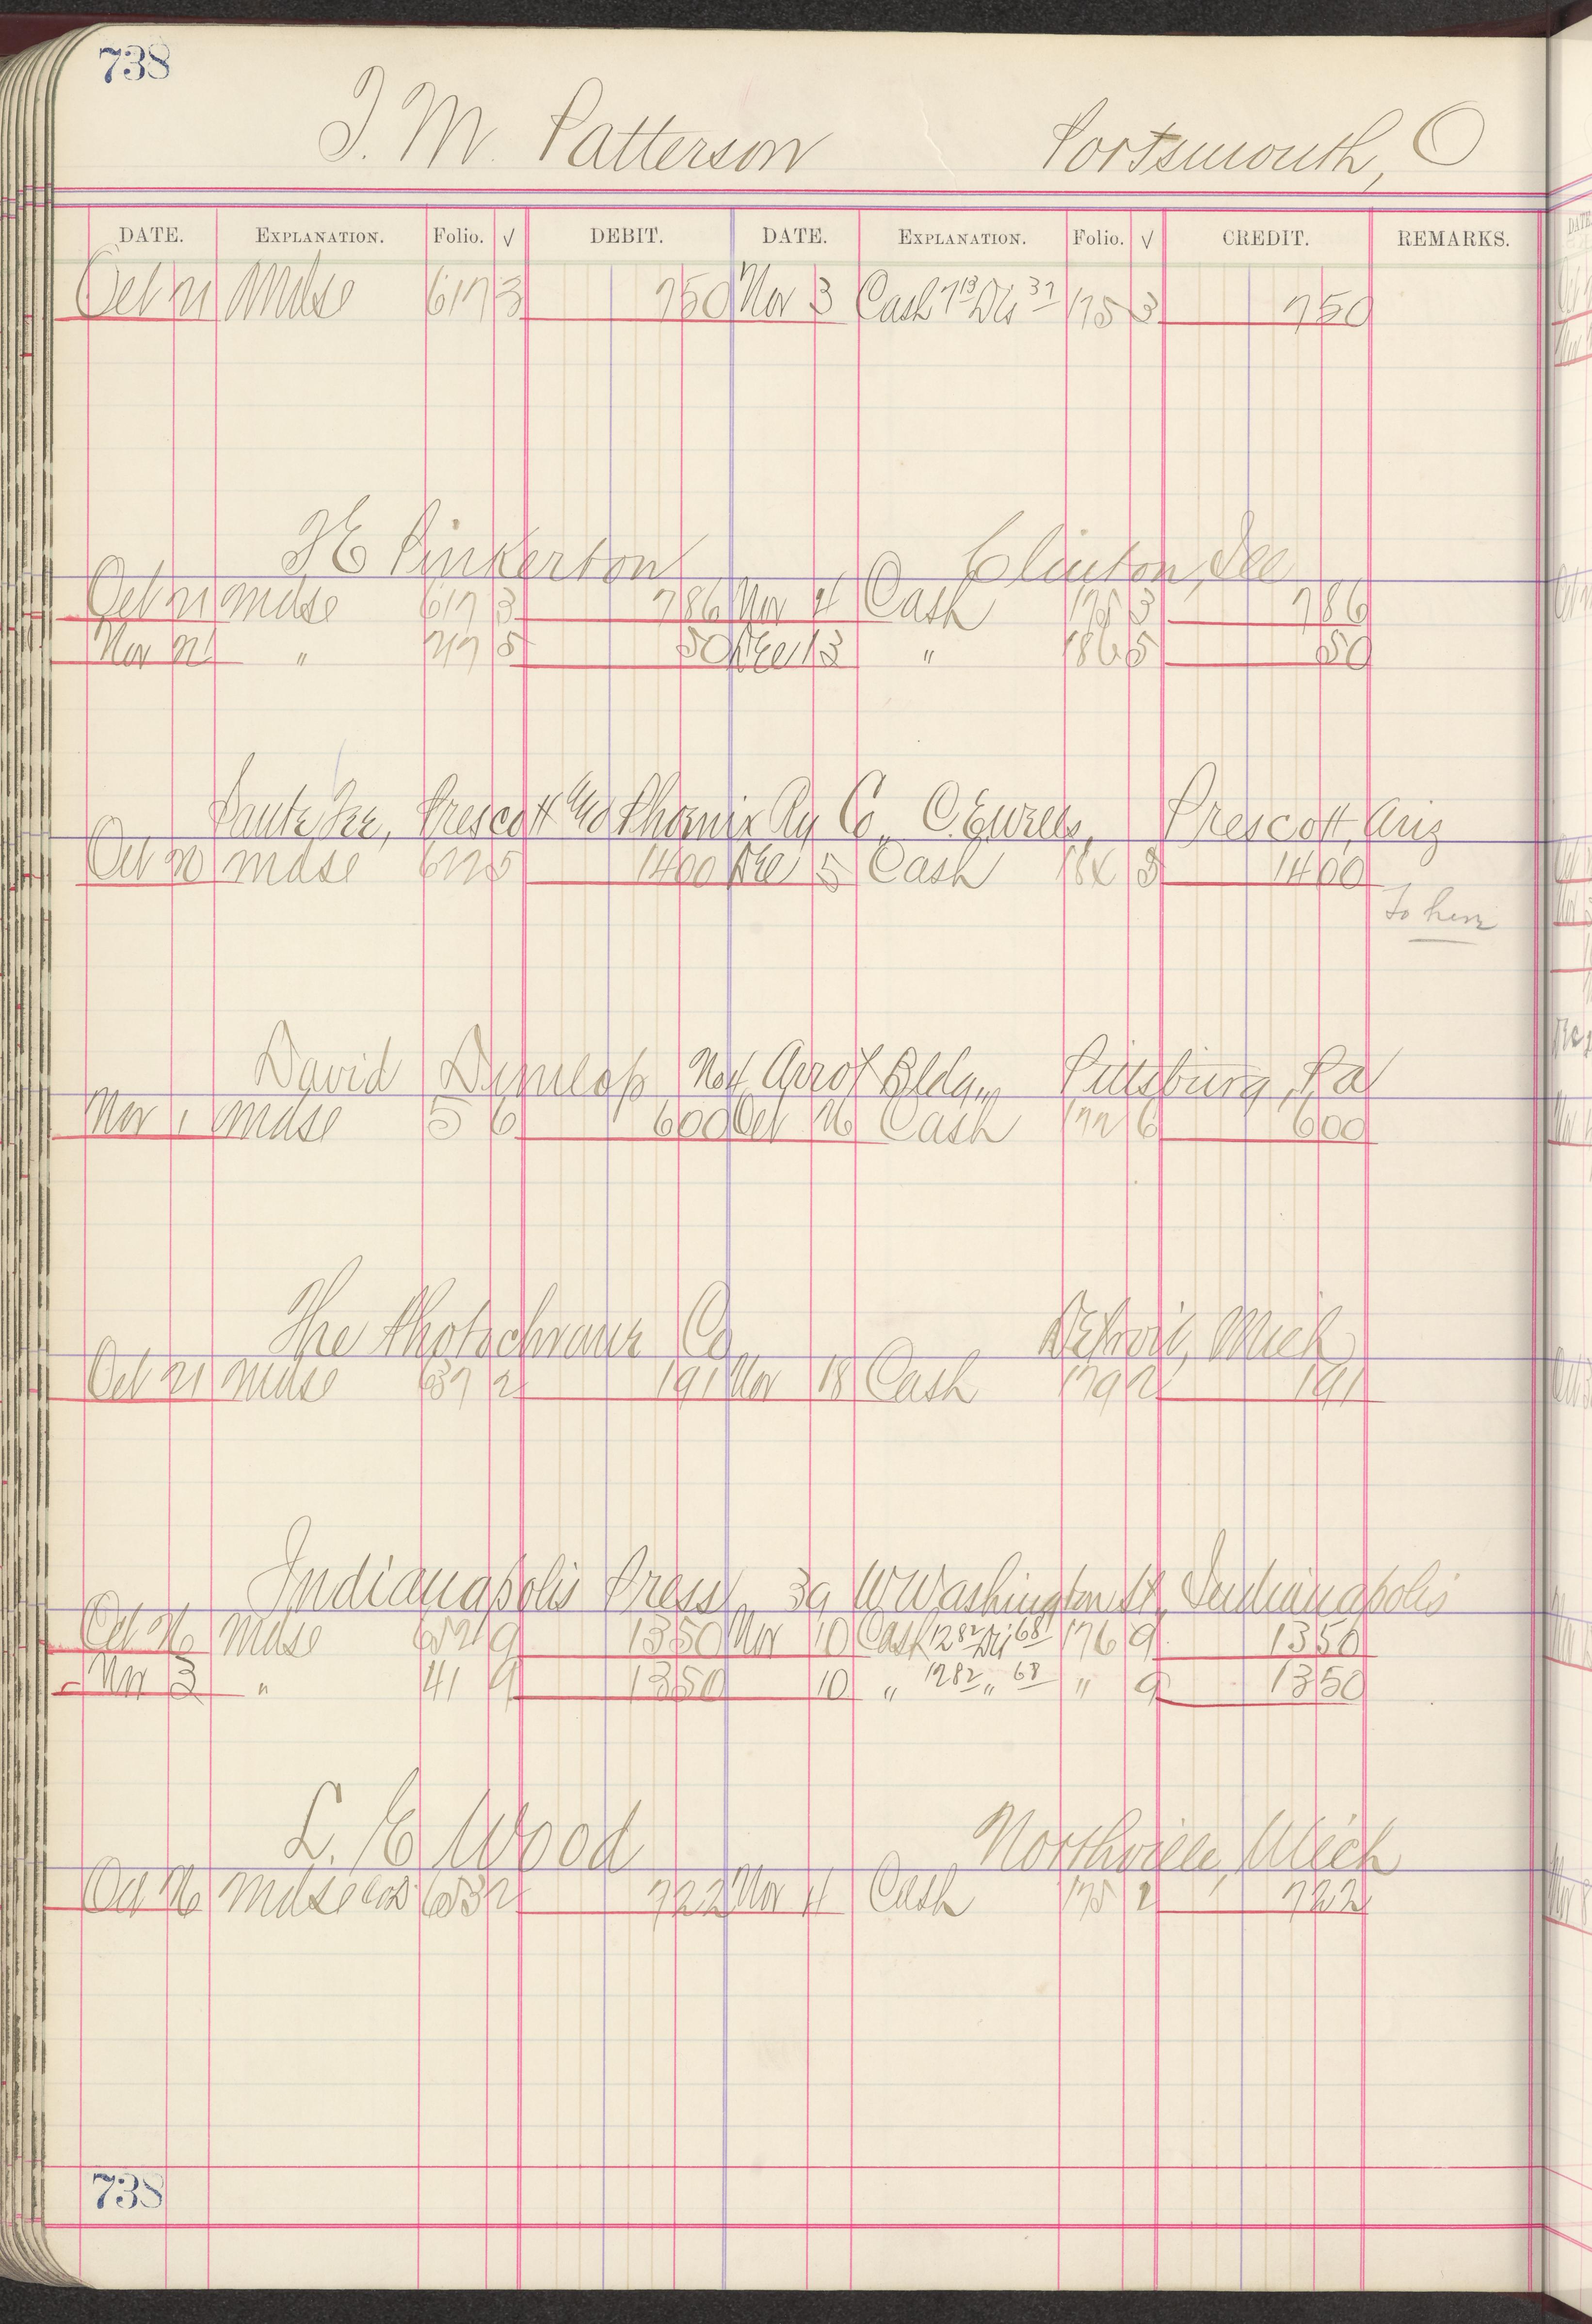 738
J. M. Patterson Portsmouth, O
DATE. EXPLANATION. Folio. √ DEBIT. DATE. EXPLANATION. Folio. √ CREDIT. REMARKS.
Oct 21 Mdse 617 3 750 Nov 3 Cash 7 13 Dis 37 175 3 750
H E Pinkerton Clinton, Ill
Oct 21 mdse 617 3 786 Nov 4 Cash 175 3 786
Nov 21 " 217 5 50 Dec 13 " 186 5 50
Sante Fee, Prescott & Phoenix Ry Co. Prescott, Ariz
Oct 20 mdse 5 1400 Dec 5 Cash 184 5 1400
To here
David Dunlop Not Arrot Bldg, Pittsburg, Pa
Nov 1 mdse 5 6 600 Oct 26 Cash 172 6 600
The Photochrome Co Detroit, Mich
Oct 21 mdse 637 2 191 Nov 18 Cash 179 2 191
Indianapolis Press, 39 W Washington St, Indianapolis
Oct 26 mdse 652 9 1350 Nov 10 Cash 1282 Dis 68 176 9 1350
Nov 3 " 41 9 1350 10 " 1282 " 68 " 9 1350
L. E Wood Northville, Mich
Oct 26 mdse 653 2 722 Nov 4 Cash 175 2 722
738